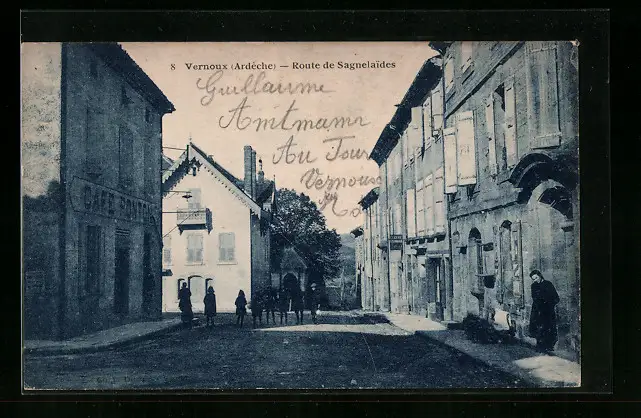 8 Vernoux (Ardèche) — Route de Sagnelaïdes
Guillaume
Amtmann
Au Tour
Vernoux
CAFÉ